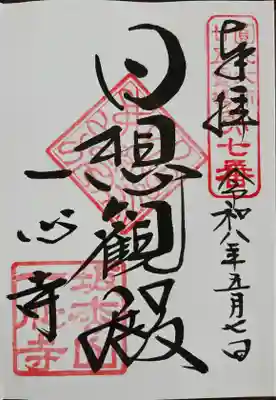 奉拝
令和八年五月七日
日想観殿
一心寺
第七番